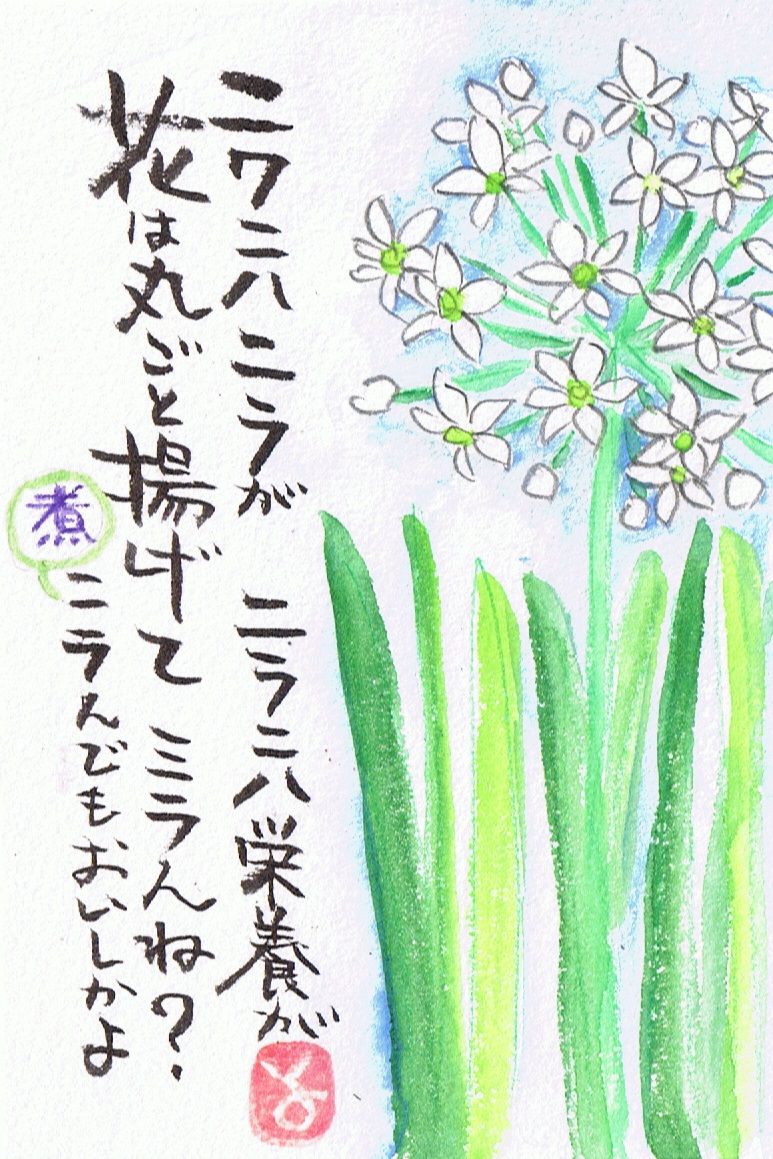 ニワニハニラが ニラニハ栄養が
花は丸ごと揚げて ミラんね?
煮
ニラんでもおいしかよ